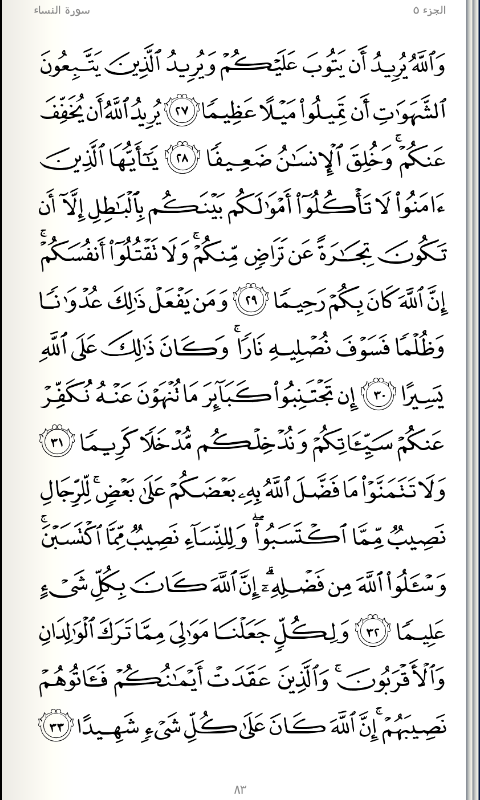 الجزء ٥
سورة النساء
وَٱللَّهُ يُرِيدُ أَن يَتُوبَ عَلَيْكُمْ وَيُرِيدُ ٱلَّذِينَ يَتَّبِعُونَ
ٱلشَّهَوَٰتِ أَن تَمِيلُوا۟ مَيْلًا عَظِيمًا ٢٧ يُرِيدُ ٱللَّهُ أَن يُخَفِّفَ
عَنكُمْ ۚ وَخُلِقَ ٱلْإِنسَٰنُ ضَعِيفًا ٢٨ يَٰٓأَيُّهَا ٱلَّذِينَ
ءَامَنُوا۟ لَا تَأْكُلُوٓا۟ أَمْوَٰلَكُم بَيْنَكُم بِٱلْبَٰطِلِ إِلَّآ أَن
تَكُونَ تِجَٰرَةً عَن تَرَاضٍ مِّنكُمْ ۚ وَلَا تَقْتُلُوٓا۟ أَنفُسَكُمْ ۚ
إِنَّ ٱللَّهَ كَانَ بِكُمْ رَحِيمًا ٢٩ وَمَن يَفْعَلْ ذَٰلِكَ عُدْوَٰنًا
وَظُلْمًا فَسَوْفَ نُصْلِيهِ نَارًا ۚ وَكَانَ ذَٰلِكَ عَلَى ٱللَّهِ
يَسِيرًا ٣٠ إِن تَجْتَنِبُوا۟ كَبَآئِرَ مَا تُنْهَوْنَ عَنْهُ نُكَفِّرْ
عَنكُمْ سَيِّـَٔاتِكُمْ وَنُدْخِلْكُم مُّدْخَلًا كَرِيمًا ٣١
وَلَا تَتَمَنَّوْا۟ مَا فَضَّلَ ٱللَّهُ بِهِۦ بَعْضَكُمْ عَلَىٰ بَعْضٍ ۚ لِّلرِّجَالِ
نَصِيبٌ مِّمَّا ٱكْتَسَبُوا۟ ۖ وَلِلنِّسَآءِ نَصِيبٌ مِّمَّا ٱكْتَسَبْنَ ۚ
وَسْـَٔلُوا۟ ٱللَّهَ مِن فَضْلِهِۦٓ ۗ إِنَّ ٱللَّهَ كَانَ بِكُلِّ شَىْءٍ
عَلِيمًا ٣٢ وَلِكُلٍّ جَعَلْنَا مَوَٰلِىَ مِمَّا تَرَكَ ٱلْوَٰلِدَانِ
وَٱلْأَقْرَبُونَ ۚ وَٱلَّذِينَ عَقَدَتْ أَيْمَٰنُكُمْ فَـَٔاتُوهُمْ
نَصِيبَهُمْ ۚ إِنَّ ٱللَّهَ كَانَ عَلَىٰ كُلِّ شَىْءٍ شَهِيدًا ٣٣
٨٣